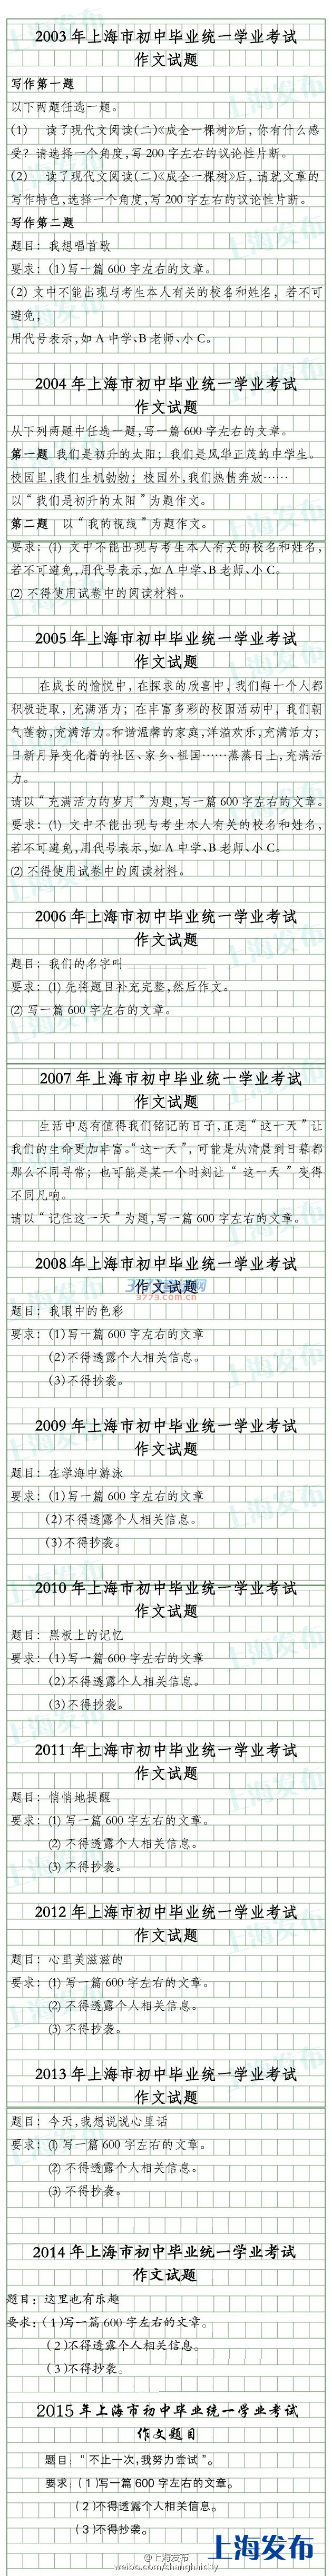 2003 年上海市初中毕业统一学业考试
作文试题
写作第一题
以下两题任选一题。
(1) 读了现代文阅读(二)《成全一棵树》后, 你有什么感
受? 请选择一个角度,写 200 字左右的议论性片断。
(2) 读了现代文阅读(二)《成全一棵树》后, 请就文章的
写作特色,选择一个角度,写 200 字左右的议论性片断。
写作第二题
题目: 我想唱首歌
要求: (1)写一篇 600 字左右的文章。
(2) 文中不能出现与考生本人有关的校名和姓名, 若不可
避免,
用代号表示,如 A 中学、B 老师、小 C。
2004 年上海市初中毕业统一学业考试
作文试题
从下列两题中任选一题,写一篇 600 字左右的文章。
第一题 我们是初升的太阳; 我们是风华正茂的中学生。
校园里,我们生机勃勃; 校园外,我们热情奔放……
以“我们是初升的太阳”为题作文。
第二题 以“我的视线”为题作文。
要求: (1) 文中不能出现与考生本人有关的校名和姓名,
若不可避免,用代号表示,如 A 中学、B 老师、小 C。
(2) 不得使用试卷中的阅读材料。
2005 年上海市初中毕业统一学业考试
作文试题
在成长的愉悦中, 在探求的欣喜中, 我们每一个人都
积极进取, 充满活力; 在丰富多彩的校园活动中, 我们朝
气蓬勃,充满活力。和谐温馨的家庭,洋溢欢乐,充满活力;
日新月异变化着的社区、家乡、祖国……蒸蒸日上,充满活
力。
请以“充满活力的岁月”为题,写一篇 600 字左右的文章。
要求: (1) 文中不能出现与考生本人有关的校名和姓名,
若不可避免,用代号表示,如 A 中学、B 老师、小 C。
(2) 不得使用试卷中的阅读材料。
2006 年上海市初中毕业统一学业考试
作文试题
题目: 我们的名字叫 ____________
要求: (1) 先将题目补充完整,然后作文。
(2) 写一篇 600 字左右的文章。
2007 年上海市初中毕业统一学业考试
作文试题
生活中总有值得我们铭记的日子,正是“这一天”让
我们的生命更加丰富。“这一天”, 可能是从清晨到日暮都
那么不同寻常; 也可能是某一个时刻让“这一天”变得
不同凡响。
请以“记住这一天”为题,写一篇 600 字左右的文章。
2008 年上海市初中毕业统一学业考试
作文试题
3773.com.cn
题目: 我眼中的色彩
要求: (1)写一篇 600 字左右的文章
(2)不得透露个人相关信息。
(3)不得抄袭。
2009 年上海市初中毕业统一学业考试
作文试题
题目: 在学海中游泳
要求: (1)写一篇 600 字左右的文章
(2)不得透露个人相关信息。
(3)不得抄袭。
2010 年上海市初中毕业统一学业考试
作文试题
题目: 黑板上的记忆
要求: (1)写一篇 600 字左右的文章
(2)不得透露个人相关信息。
(3)不得抄袭。
2011 年上海市初中毕业统一学业考试
作文试题
题目: 悄悄地提醒
要求: (1) 写一篇 600 字左右的文章。
(2) 不得透露个人相关信息。
(3) 不得抄袭。
2012 年上海市初中毕业统一学业考试
作文试题
题目: 心里美滋滋的
要求: (1) 写一篇 600 字左右的文章。
(2) 不得透露个人相关信息。
(3) 不得抄袭。
2013 年上海市初中毕业统一学业考试
作文试题
题目: 今天,我想说说心里话
要求: (1) 写一篇 600 字左右的文章。
(2) 不得透露个人相关信息。
(3) 不得抄袭。
2014 年上海市初中毕业统一学业考试
作文试题
题目: 这里也有乐趣
要求: (1)写一篇 600 字左右的文章。
(2)不得透露个人相关信息。
(3)不得抄袭。
2015 年上海市初中毕业统一学业考试
作文题目
题目: “不止一次,我努力尝试”。
要求: (1)写一篇 600 字左右的文章。
(2)不得透露个人相关信息。
(3)不得抄袭。
上海发布
@上海发布
weibo.com/shanghaicity